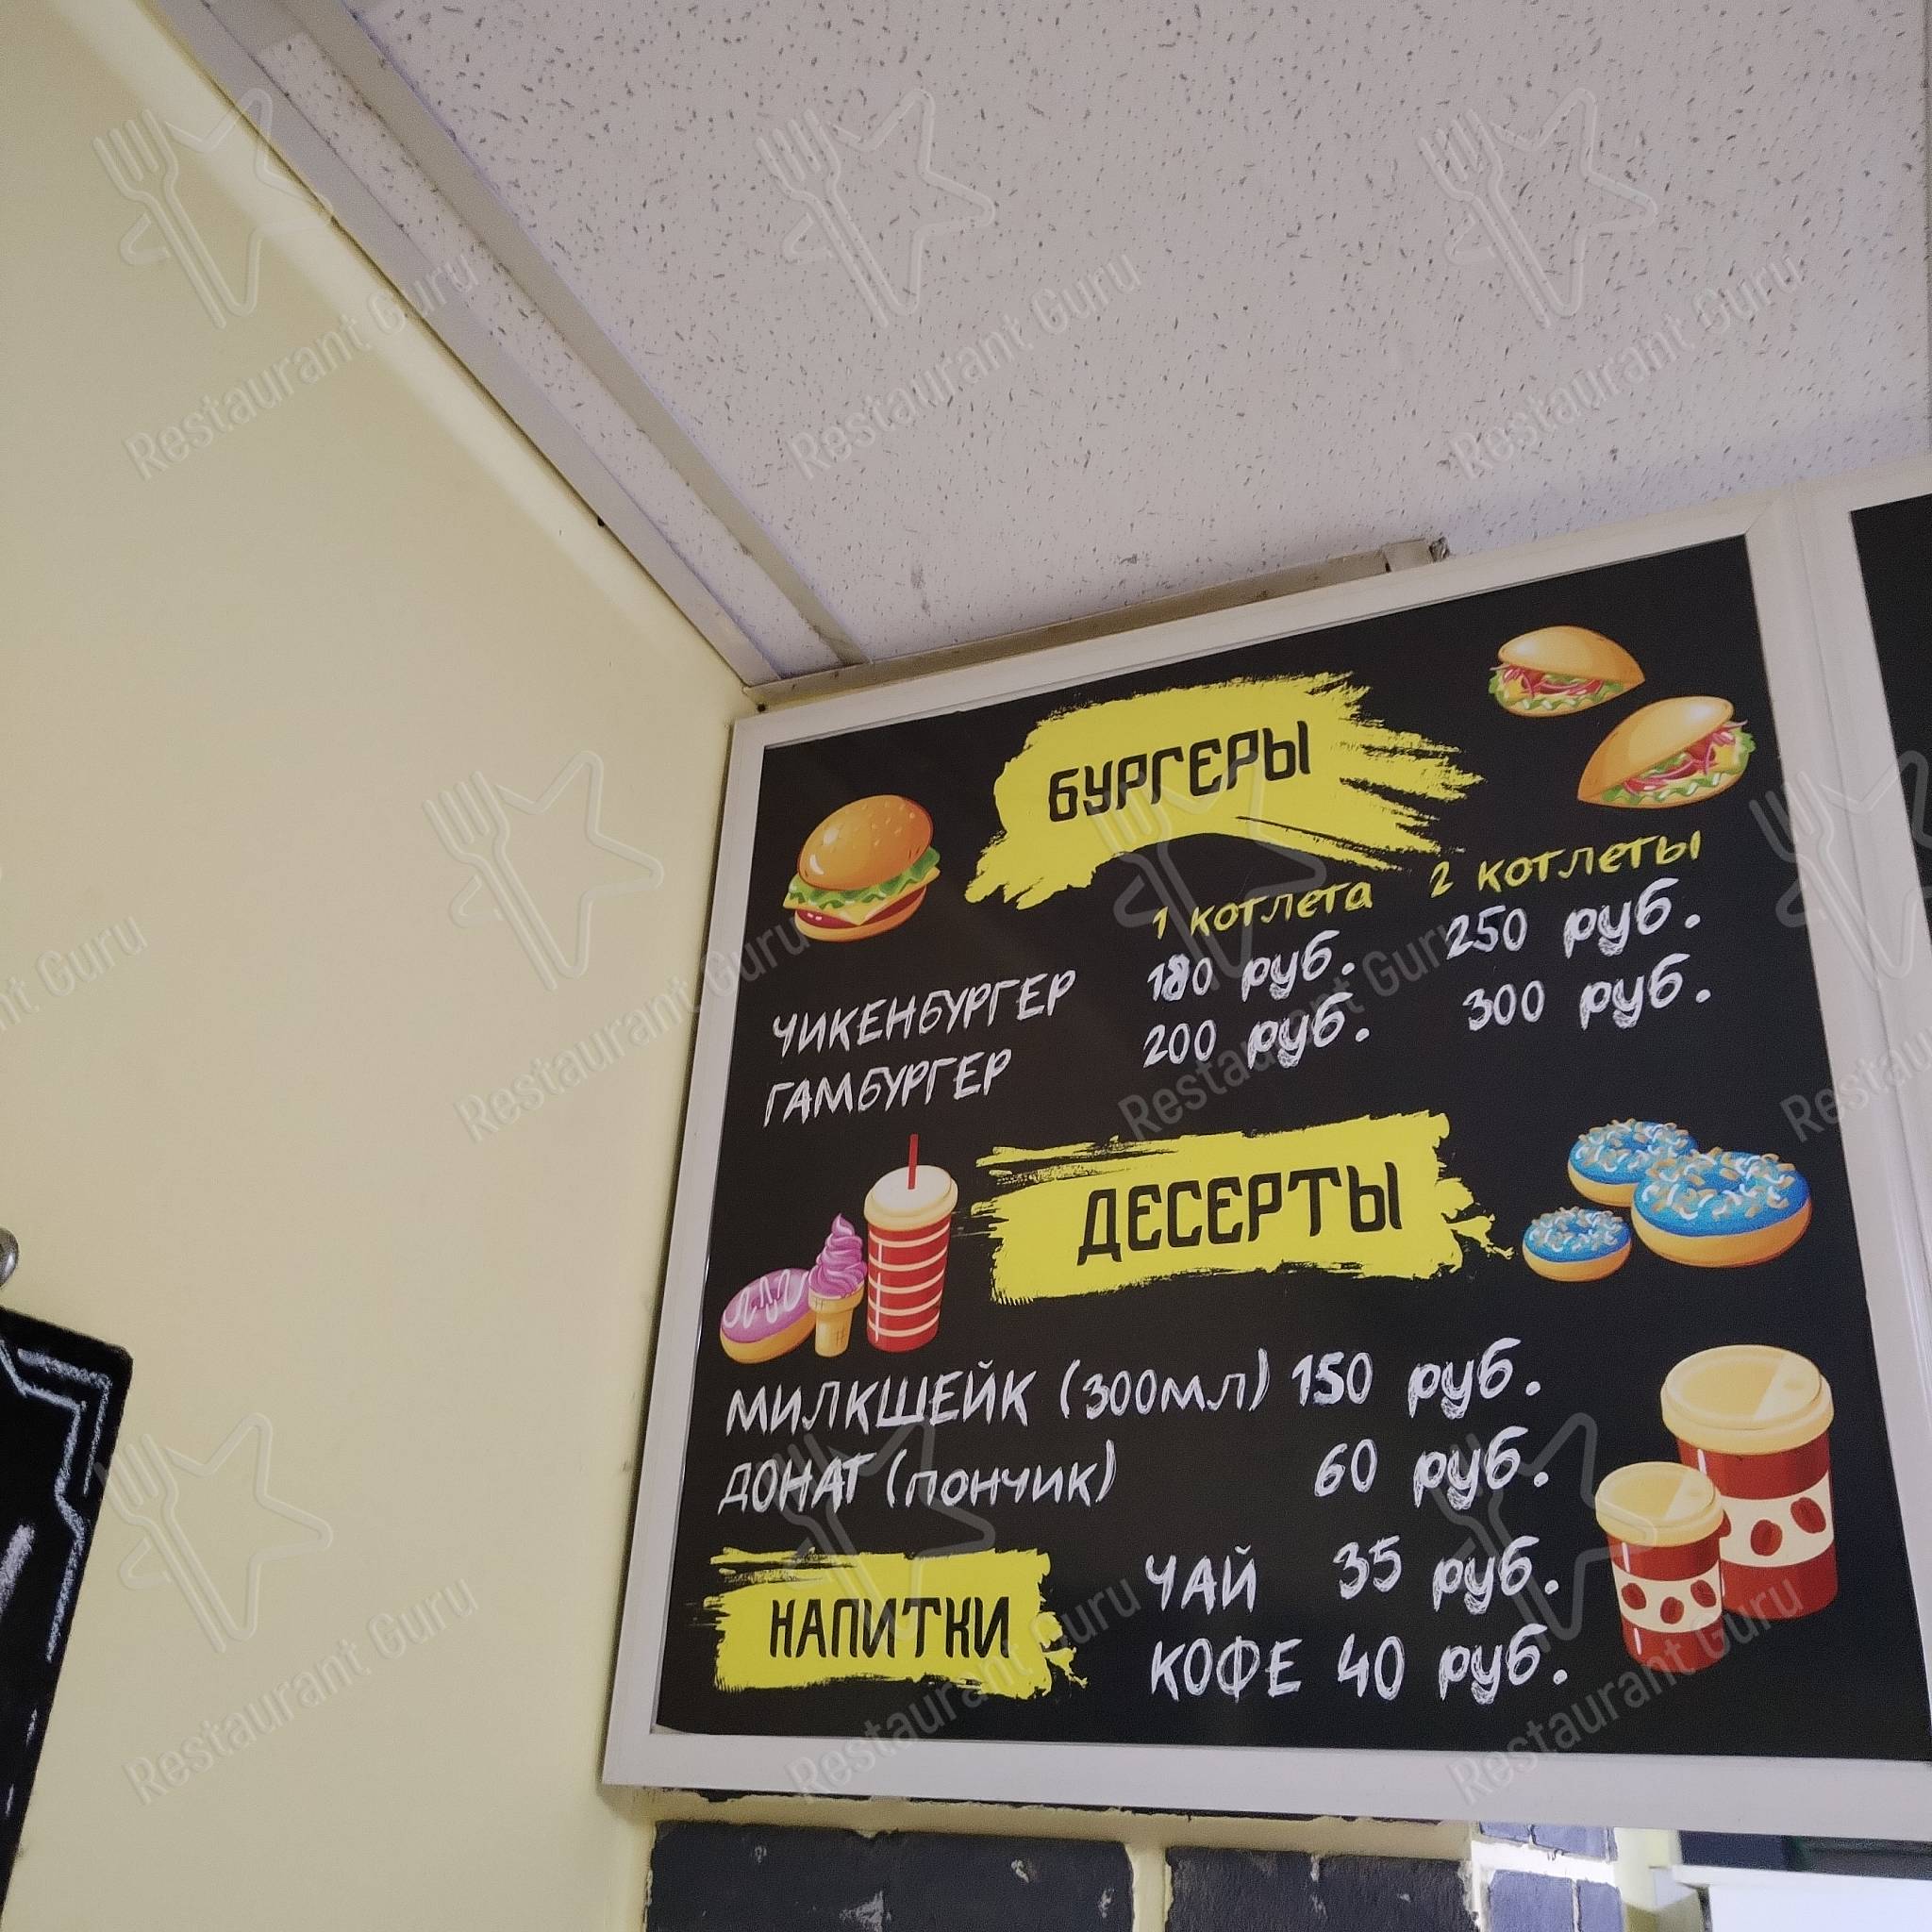 БУРГЕРЫ
1 котлета 2 котлеты
ЧИКЕНБУРГЕР 180 руб. 250 руб.
ГАМБУРГЕР 200 руб. 300 руб.
ДЕСЕРТЫ
МИЛКШЕЙК (300мл) 150 руб.
ДОНАТ (пончик) 60 руб.
НАПИТКИ
ЧАЙ 35 руб.
КОФЕ 40 руб.
Restaurant Guru